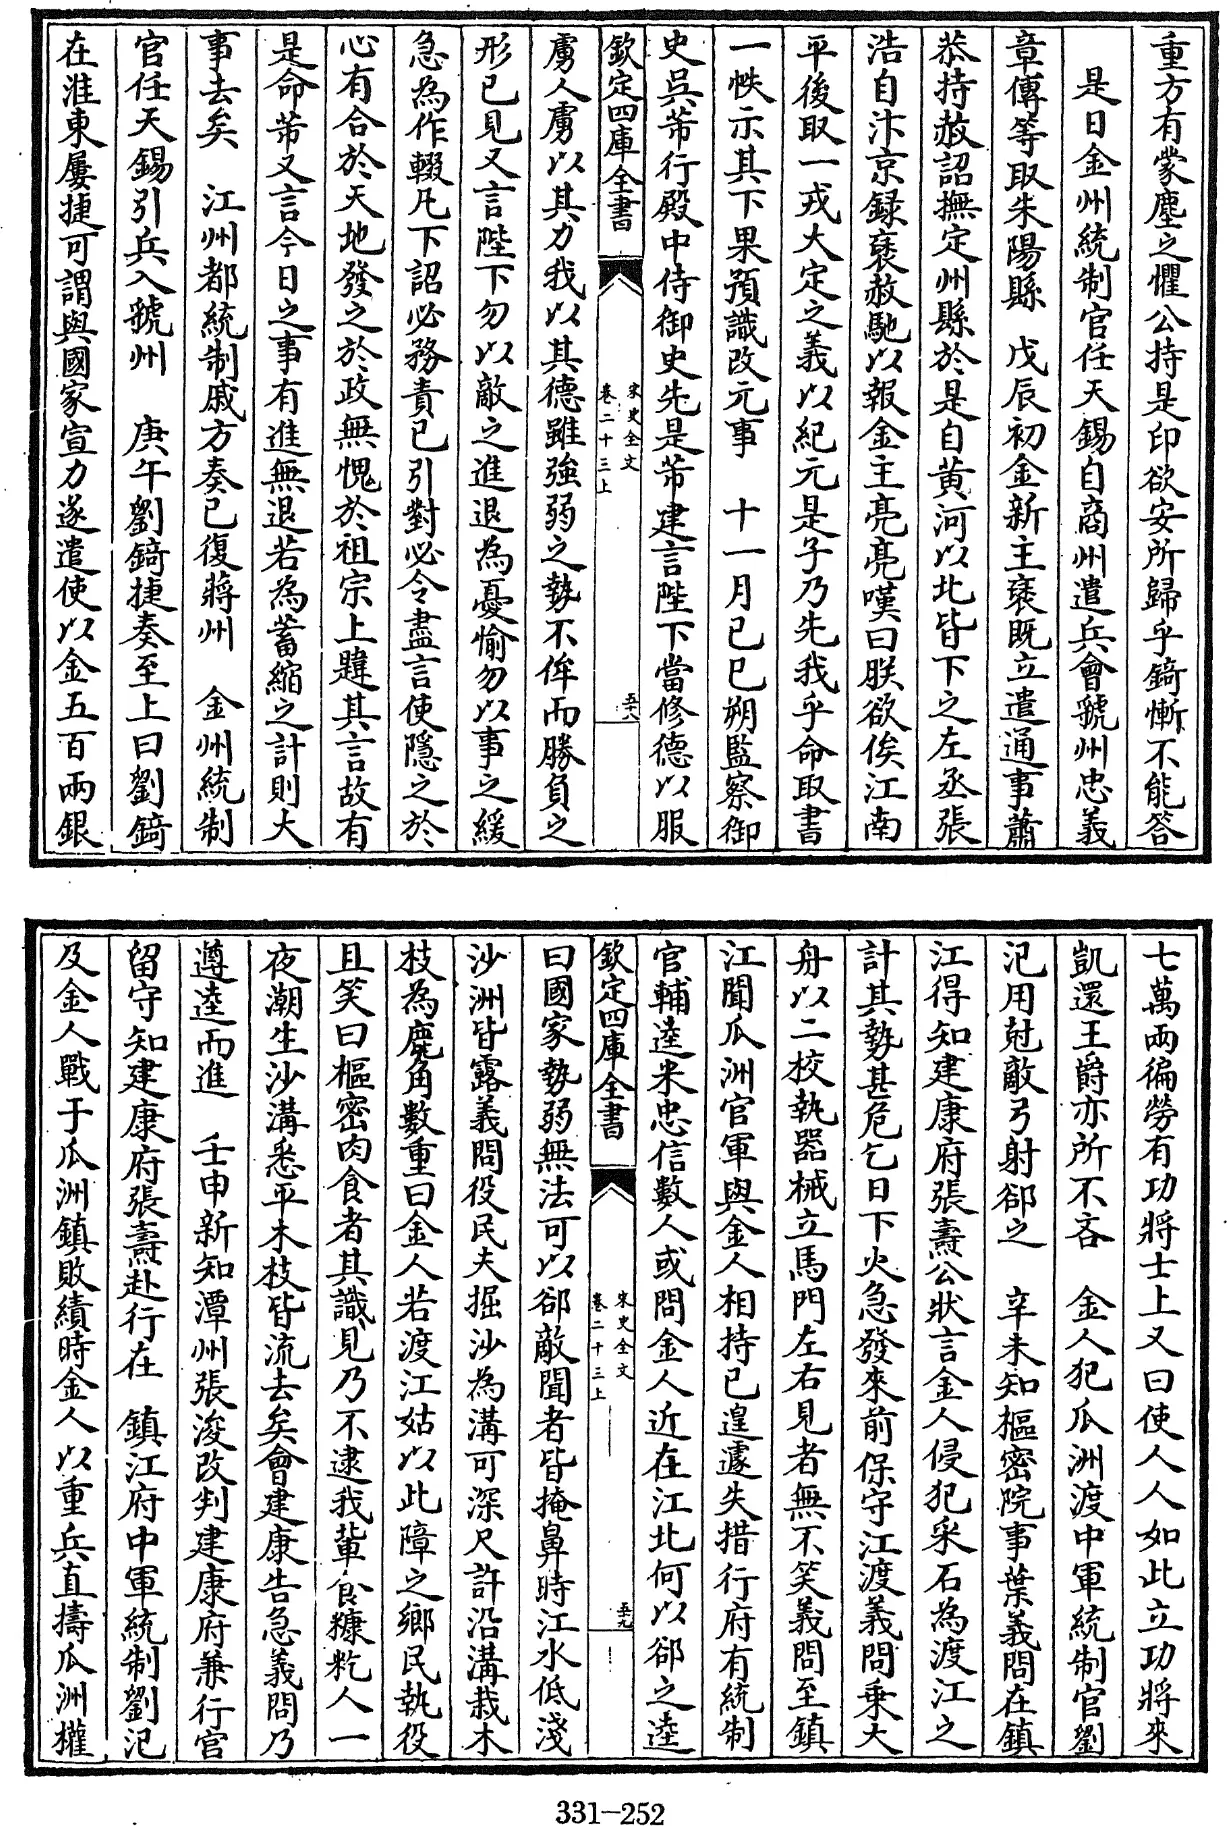 重方有蒙塵之懼公持是印欲安所歸乎錡慚不能答
是日金州統制官任天錫自商州遣兵會虢州忠義
章傅等取朱陽縣　戊辰初金新主褎既立遣通事蕭
恭持赦詔撫定州縣於是自黃河以北皆下之左丞張
浩自汴京録褎赦馳以報金主亮亮嘆曰朕欲俟江南
平後取一戎大定之義以紀元是子乃先我乎命取書
一帙示其下果預識改元事　十一月己巳朔監察御
史吳芾行殿中侍御史先是芾建言陛下當修德以服
欽定四庫全書
宋史全文
卷二十三上
五十八
虜人虜以其力我以其德雖強弱之勢不侔而勝負之
形已見又言陛下勿以敵之進退為憂愉勿以事之緩
急為作輟凡下詔必務責已引對必令盡言使隱之於
心有合於天地發之於政無愧於祖宗上韙其言故有
是命芾又言今日之事有進無退若為蓄縮之計則大
事去矣　江州都統制戚方奏已復蔣州　金州統制
官任天錫引兵入虢州　庚午劉錡捷奏至上曰劉錡
在淮東屢捷可謂與國家宣力遂遣使以金五百兩銀
七萬兩徧勞有功將士上又曰使人人如此立功將來
凱還王爵亦所不吝　金人犯瓜洲渡中軍統制官劉
汜用尅敵弓射郤之　辛未知樞密院事葉義問在鎮
江得知建康府張燾公狀言金人侵犯采石為渡江之
計其勢甚危乞日下火急發來前保守江渡義問乘大
舟以二校執器械立馬門左右見者無不笑義問至鎮
江聞瓜洲官軍與金人相持已遑遽失措行府有統制
官輔逵米忠信數人或問金人近在江北何以郤之逵
欽定四庫全書
宋史全文
卷二十三上
五十九
曰國家勢弱無法可以郤敵聞者皆掩鼻時江水低淺
沙洲皆露義問役民夫掘沙為溝可深尺許沿溝栽木
枝為鹿角數重曰金人若渡江姑以此障之鄉民執役
且笑曰樞密肉食者其識見乃不逮我輩食糠籺人一
夜潮生沙溝悉平木枝皆流去矣會建康告急義問乃
遵逵而進　壬申新知潭州張浚改判建康府兼行宫
留守知建康府張燾赴行在　鎮江府中軍統制劉汜
及金人戰于瓜洲鎮敗績時金人以重兵直擣瓜洲權
331-252